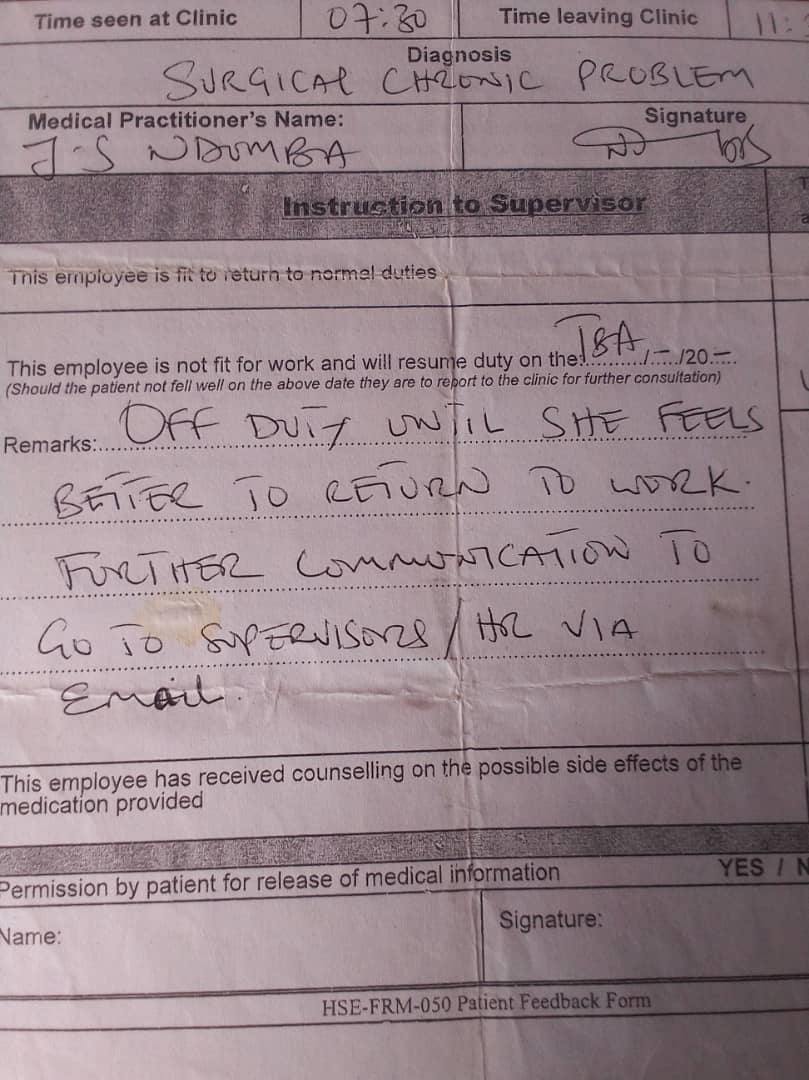 Time seen at Clinic 07:30 Time leaving Clinic 11:
Diagnosis
SURGICAL CHRONIC PROBLEM
Medical Practitioner's Name: Signature
J-S NDUMBA
Instruction to Supervisor
This employee is fit to return to normal duties
This employee is not fit for work and will resume duty on the TBA/-/20-
(Should the patient not fell well on the above date they are to report to the clinic for further consultation)
Remarks: OFF DUTY UNTIL SHE FEELS
BETTER TO RETURN TO WORK.
FURTHER COMMUNICATION TO
GO TO SUPERVISORS / HR VIA
Email.
This employee has received counselling on the possible side effects of the
medication provided
YES / N
Permission by patient for release of medical information
Name: Signature:
HSE-FRM-050 Patient Feedback Form